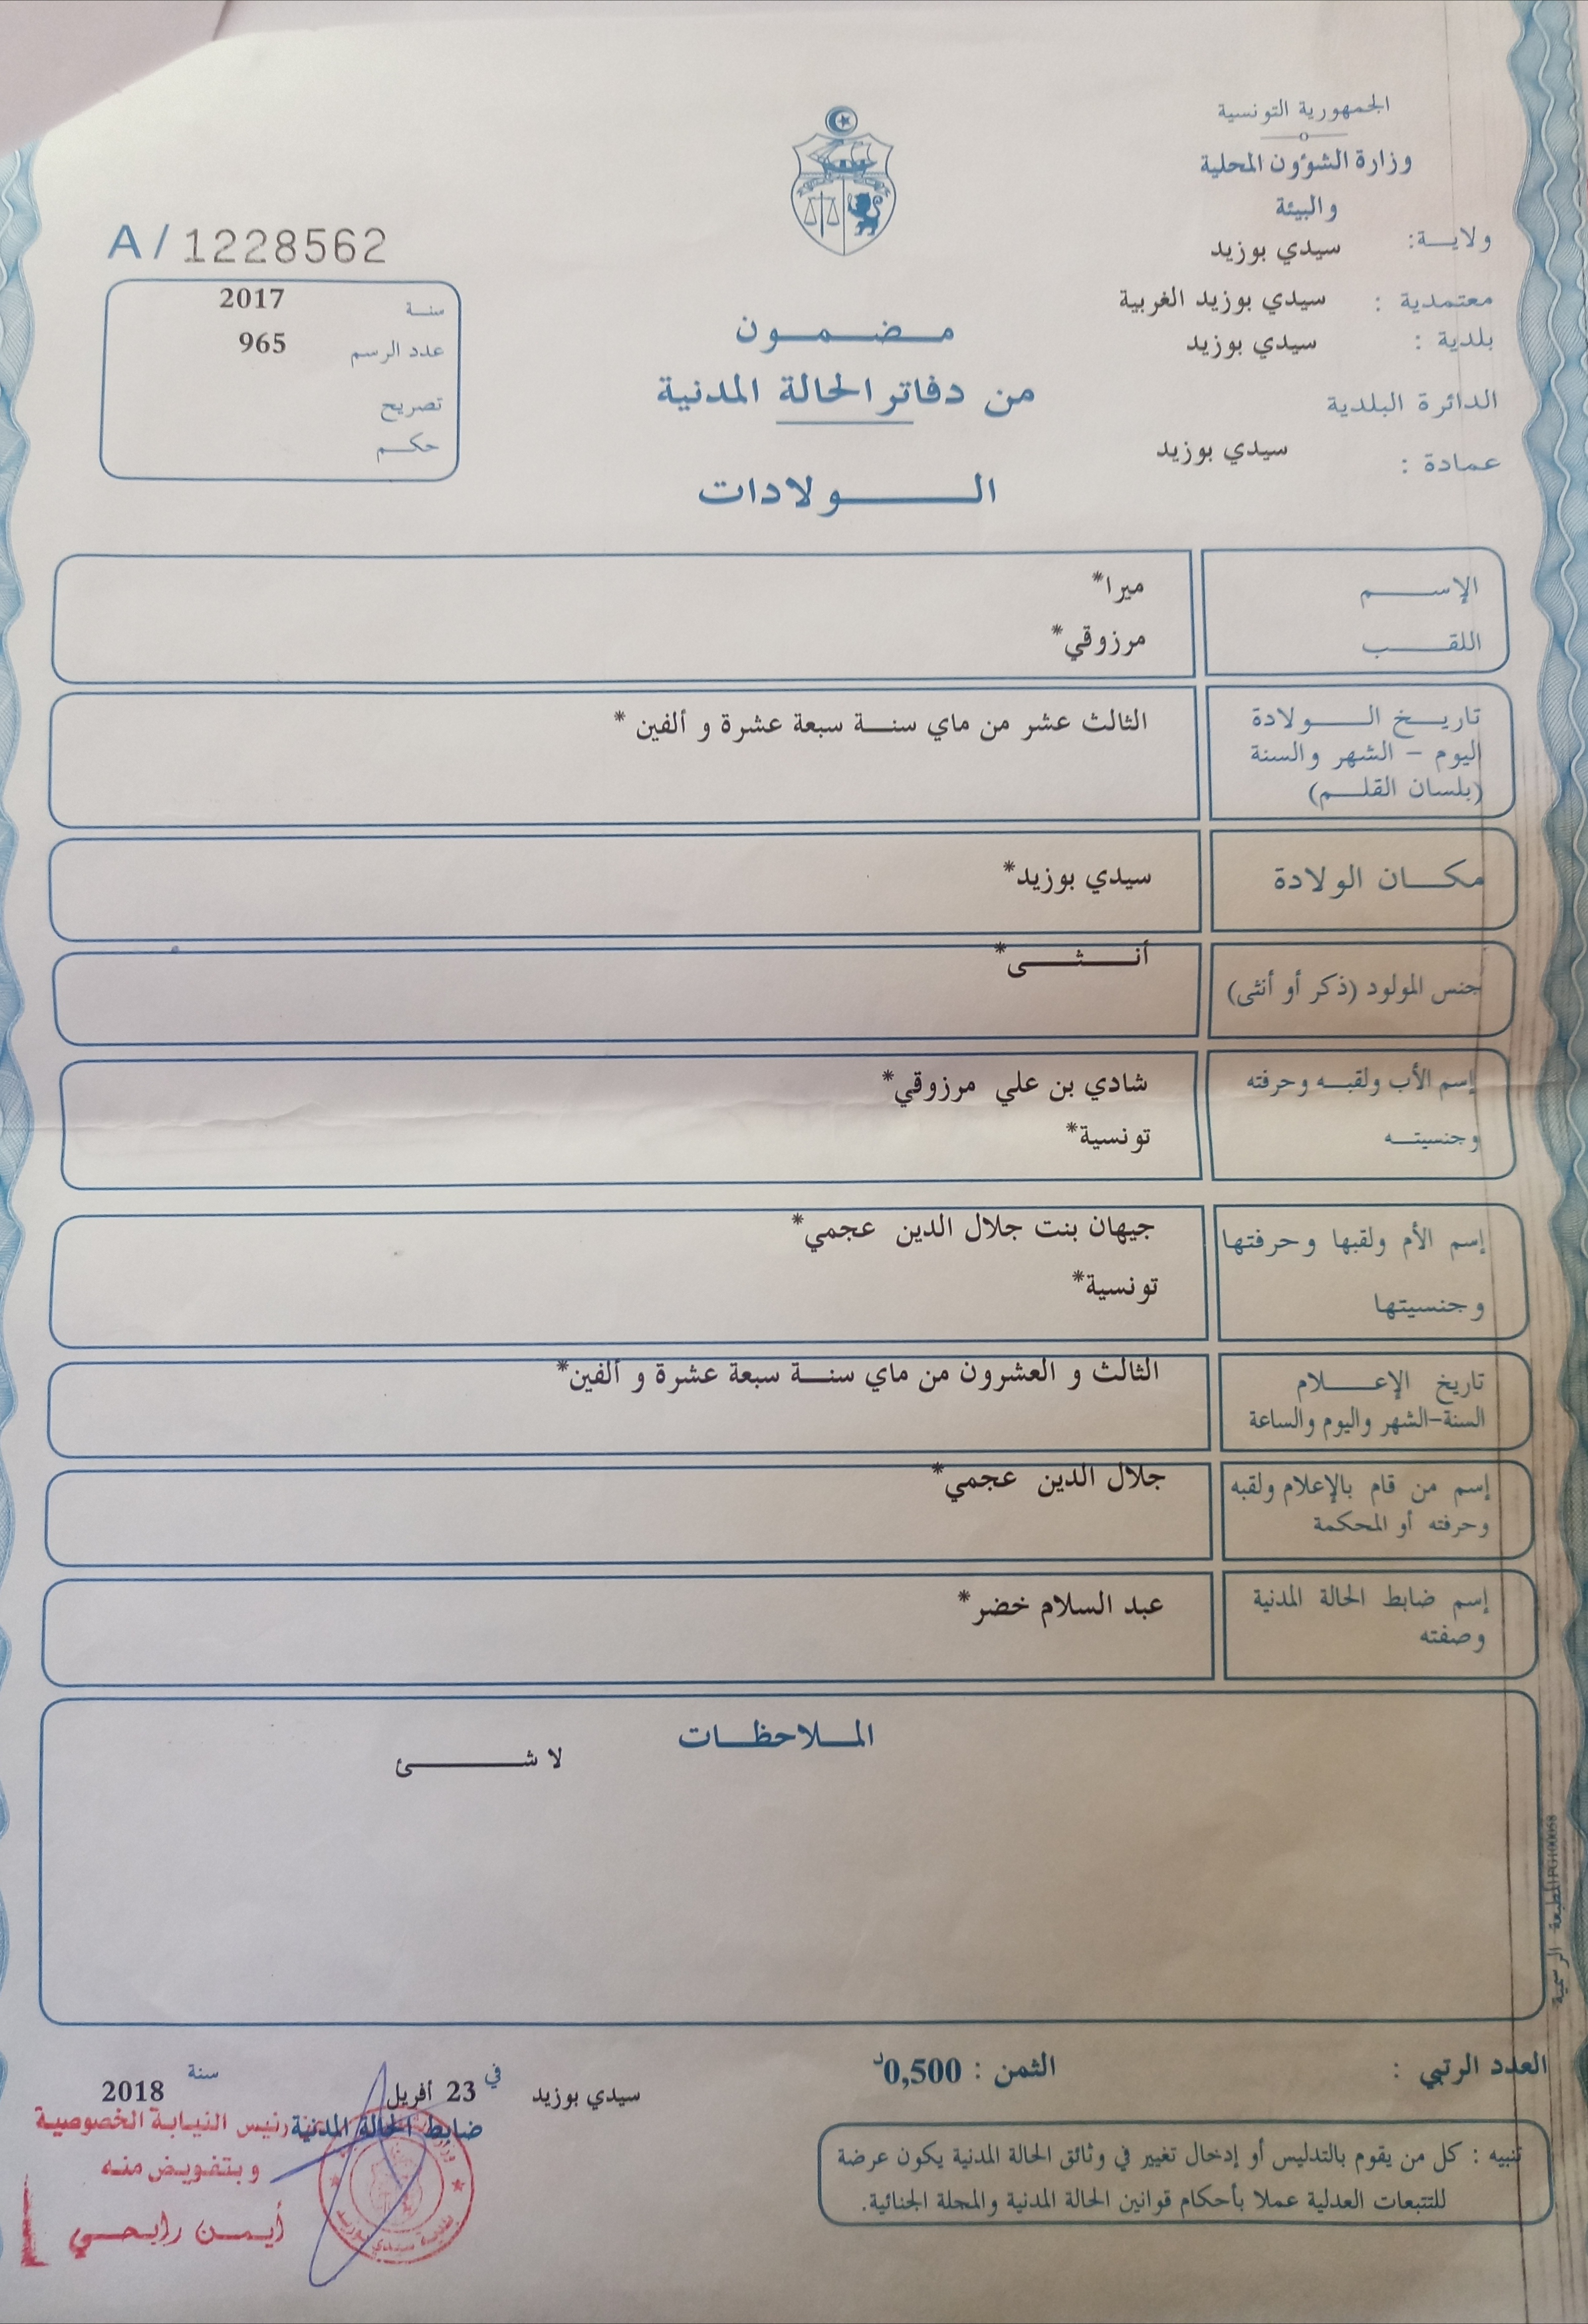 الجمهورية التونسية
وزارة الشؤون المحلية
والبيئة
ولايــة: سيدي بوزيد
معتمدية : سيدي بوزيد الغربية
بلدية : سيدي بوزيد
الدائرة البلدية
عمادة : سيدي بوزيد
مـضـمـون
من دفاتر الحالة المدنية
الــولادات
A/ 1228562
سنـة 2017
عدد الرسم 965
تصريح
حكـم
الإســم ميرا*
اللقــب مرزوقي*
تاريــخ الــولادة
اليوم - الشهر والسنة
(بلسان القلــم)
الثالث عشر من ماي سنــة سبعة عشرة و ألفين *
مكــان الولادة سيدي بوزيد*
جنس المولود (ذكر أو أنثى) أنــثــى*
إسم الأب ولقبــه وحرفته شادي بن علي مرزوقي*
وجنسيتــه تونسية*
إسم الأم ولقبها وحرفتها جيهان بنت جلال الدين عجمي*
وجنسيتها تونسية*
تاريخ الإعـــلام الثالث و العشرون من ماي سنــة سبعة عشرة و ألفين*
السنة-الشهر واليوم والساعة
إسم من قام بالإعلام ولقبه جلال الدين عجمي*
وحرفته أو المحكمة
إسم ضابط الحالة المدنية عبد السلام خضر*
وصفته
المــلاحظــات
لا شــــئ
المطبعة الرسمية PG100058
العدد الرتبي :
الثمن : 0,500د
سيدي بوزيد في 23 أفريل سنة 2018
ضابط الحالة المدنية
رئيس النيابة الخصوصية
وبتفويض منه
أيمـن رابحـي
بلدية سيدي بوزيد
تنبيه : كل من يقوم بالتدليس أو إدخال تغيير في وثائق الحالة المدنية يكون عرضة
للتتبعات العدلية عملا بأحكام قوانين الحالة المدنية والمجلة الجنائية.